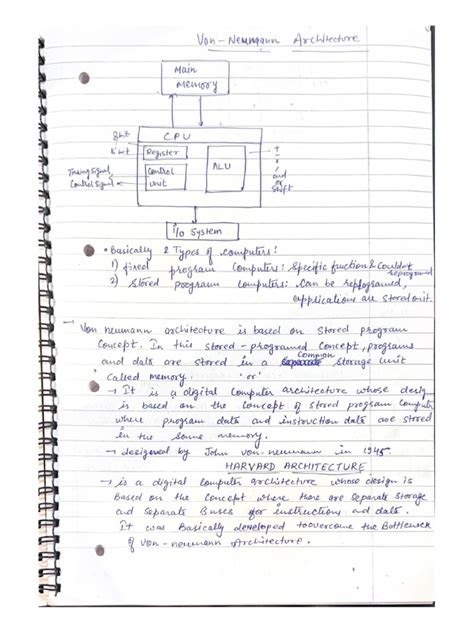 Von-Neumann Architecture
Main
Memory
CPU
8bit
16bit
Register
ALU
Timing Signal
Control Signal
Control
Unit
+
and
or
shift
I/o System
• Basically 2 Types of computers:
1) fixed program computers: Specific function & Couldn't
reprogramed
2) Stored program computers: Can be reprogramed,
applications are stored in it.
→ Von neumann architecture is based on stored program
concept. In this stored-programed concept, programs
and data are stored in a common storage unit
Called memory. 'or'
→ It is a digital computer architecture whose design
is based on the concept of stored program computer
where program data and instruction data are stored
in the same memory.
→ designed by John von-neumann in 1945.
HARVARD ARCHITECTURE
→ is a digital computer architecture whose design is
Based on the concept where there are separate storage
and separate Buses for instructions and data.
It was Basically developed to overcome the Bottleneck
of von-neumann Architecture.